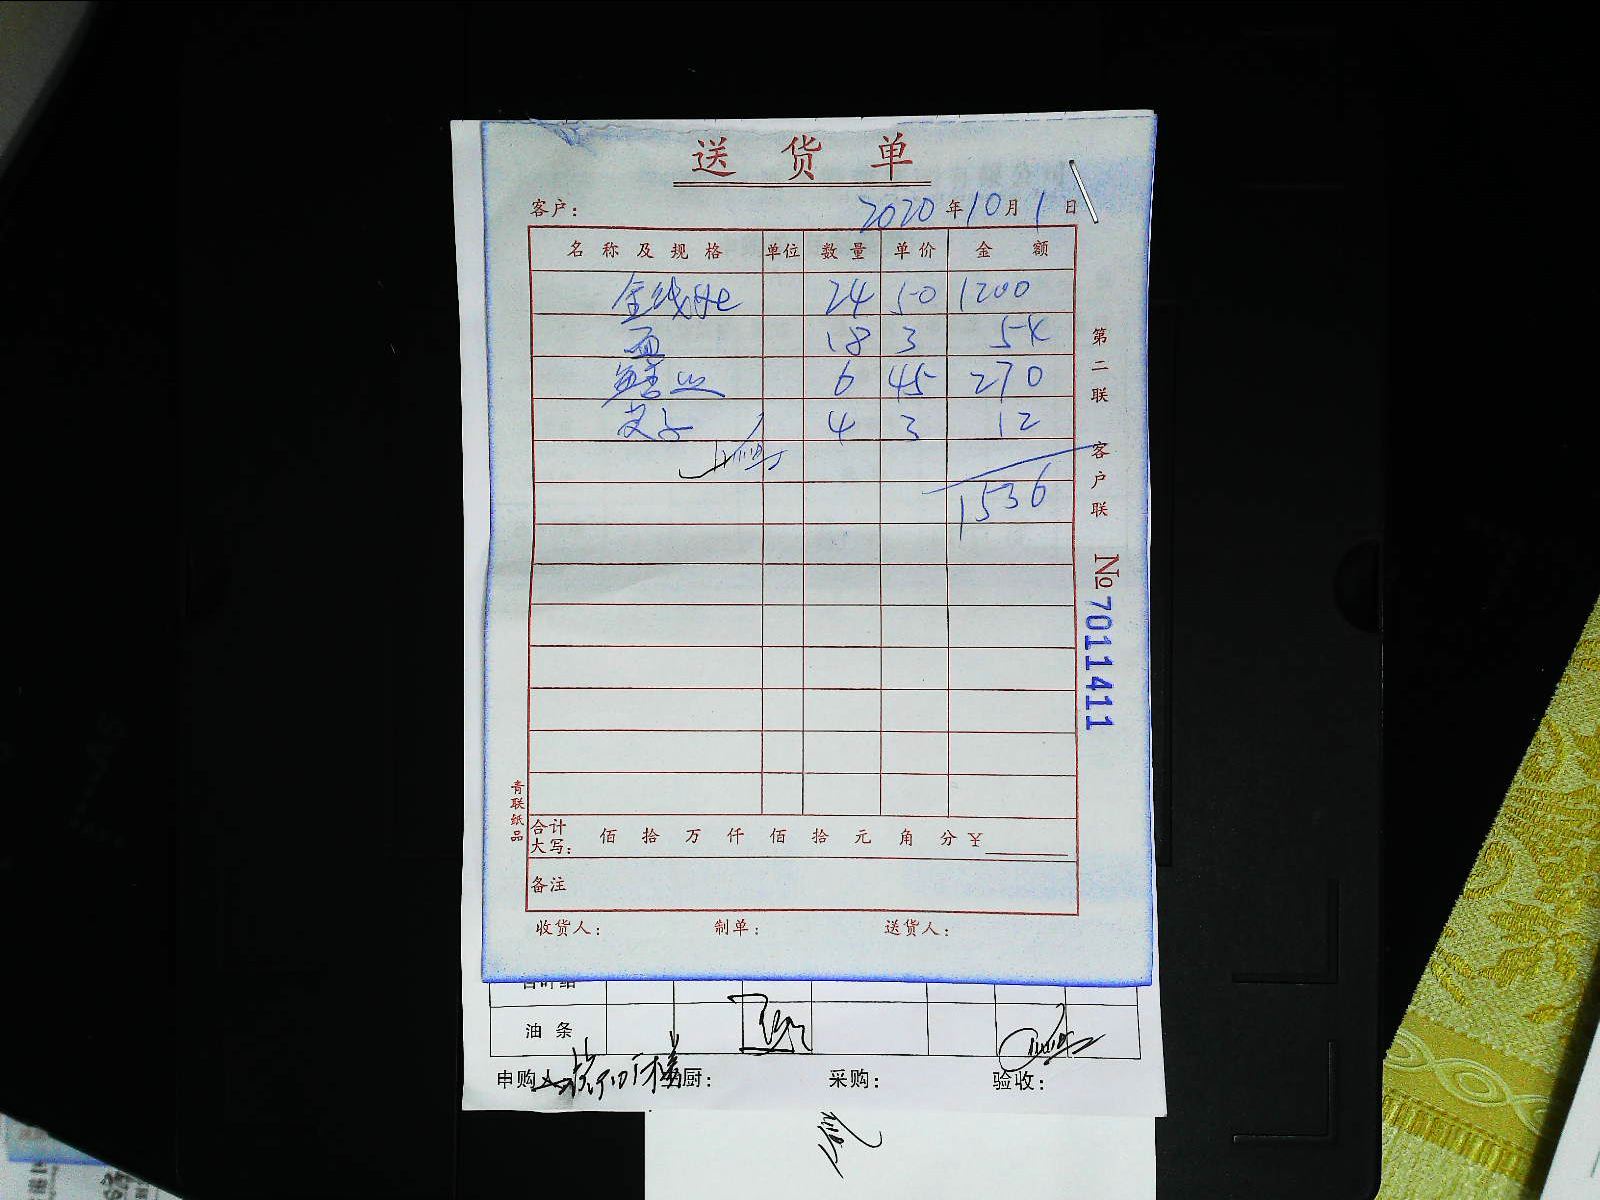 送货单
客户: 2020年10月1日
名称及规格 单位 数量 单价 金额
金线 24 50 1200
面 18 3 54
6 45 270
4 3 12
1536
合计大写: 佰 拾 万 仟 佰 拾 元 角 分 ¥
备注
收货人: 制单: 送货人:
青联纸品
第二联 客户联 № 7011411
百叶结
油条
申购人 厨: 采购: 验收: